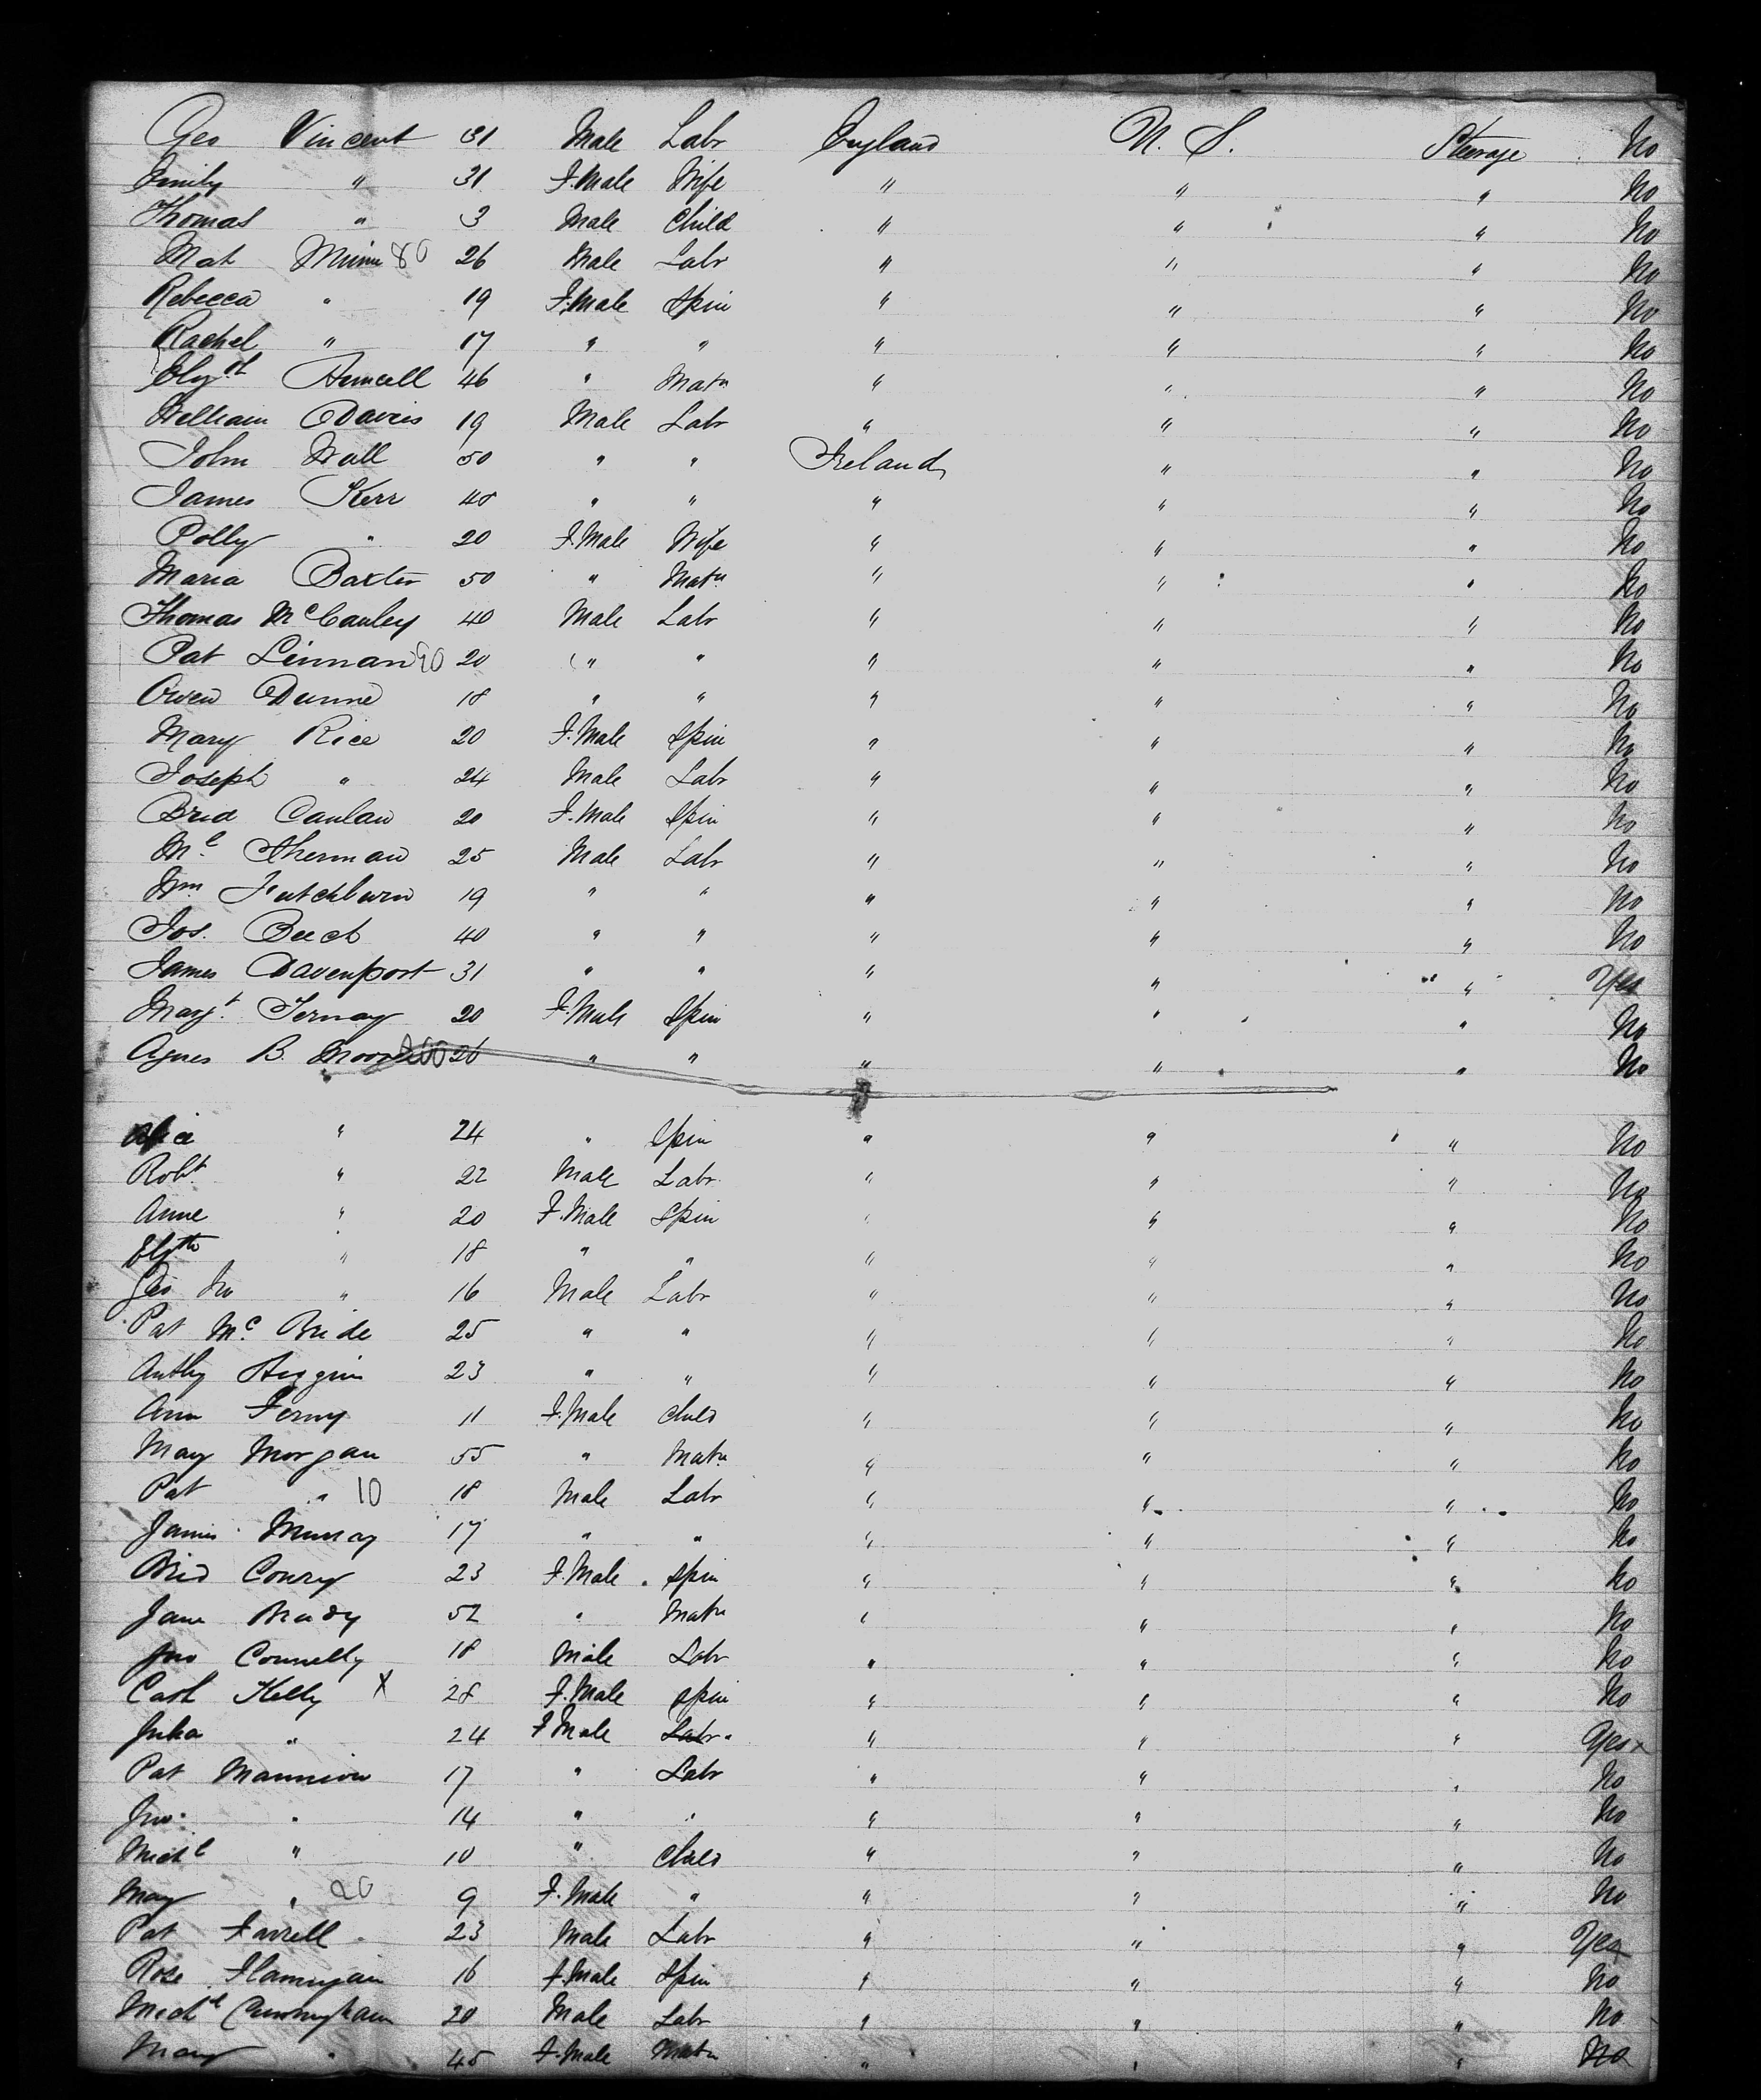 Geo Vincent 31 Male Labr England U. S. Steerage No
Emily " 31 F.Male Wife " " " No
Thomas " 3 Male Child " " " No
Mat 80 26 Male Labr " " " No
Rebecca " 19 F.Male Spin " " " No
Rachel " 17 " " " " " No
46 " Matn " " " No
William Davies 19 Male Labr " " " No
John Wall 50 " " Ireland " " No
James Kerr 48 " " " " " No
Polly " 20 F.Male Wife " " " No
Maria Baxter 50 " Matn " " " No
Thomas McCauley 40 Male Labr " " " No
Pat Linnan 90 20 " " " " " No
Owen Dunne 18 " " " " " No
Mary Rice 20 F.Male Spin " " " No
Joseph " 24 Male Labr " " " No
Brid Canlan 20 F.Male Spin " " " No
Ml Sherman 25 Male Labr " " " No
Wm 19 " " " " " No
Jos. Beech 40 " " " " " No
James Davenport 31 " " " " " Yes
Margt Ternay 20 F.Male Spin " " " No
Agnes B. Moore 200 26 " " " " " No
Alice " 24 " Spin " " " No
Robt " 22 Male Labr " " " No
Anne " 20 F.Male Spin " " " No
Elzth " 18 " " " " " No
Geo " 16 Male Labr " " " No
Pat Mc Bride 25 " " " " " No
Anthy Higgins 23 " " " " " No
Ann 11 F.Male Child " " " No
Mary Morgan 55 " Matn " " " No
Pat " 10 18 Male Labr " " " No
James Murray 17 " " " " " No
Brid Conry 23 F.Male Spin " " " No
Jane Brady 52 " Matn " " " No
Jno Connelly 18 Male Labr " " " No
Cath Kelly X 28 F.Male Spin " " " No
Julia " 24 F Male Labr " " " Yes
Pat Mannion 17 " Labr " " " No
Jno. " 14 " " " " " No
Michl " 10 " Child " " " No
Mary " 20 9 F.Male " " " " No
Pat Farrell 23 Male Labr " " " Yes
Rose Flannigan 16 F.Male Spin " " " No
Michl Cunningham 20 Male Labr " " " No
Mary " 45 F.Male Matn " " " No